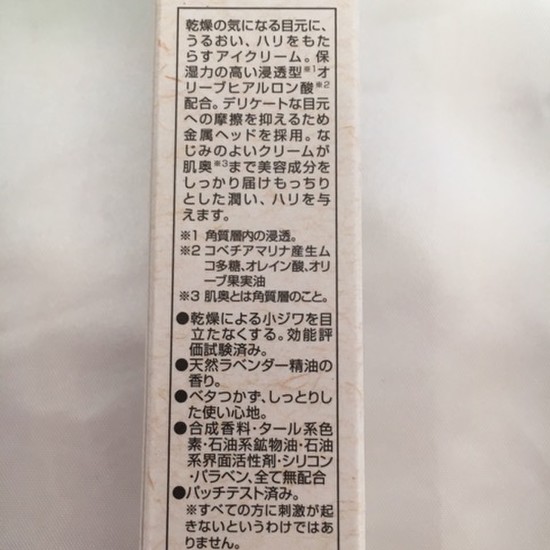 乾燥の気になる目元に、
うるおい、ハリをもた
らすアイクリーム。保
湿力の高い浸透型※1オ
リーブヒアルロン酸※2
配合。デリケートな目元
への摩擦を抑えるため
金属ヘッドを採用。な
じみのよいクリームが
肌奥※3まで美容成分を
しっかり届けもっちり
とした潤い、ハリを与
えます。
※1 角質層内の浸透。
※2 コベチアマリナ産生ム
コ多糖、オレイン酸、オリ
ーブ果実油
※3 肌奥とは角質層のこと。
●乾燥による小ジワを目
立たなくする。効能評
価試験済み。
●天然ラベンダー精油の
香り。
●ベタつかず、しっとりし
た使い心地。
●合成香料・タール系色
素・石油系鉱物油・石油
系界面活性剤・シリコン
・パラベン、全て無配合
●パッチテスト済み。
※すべての方に刺激が起
きないというわけではあ
りません。